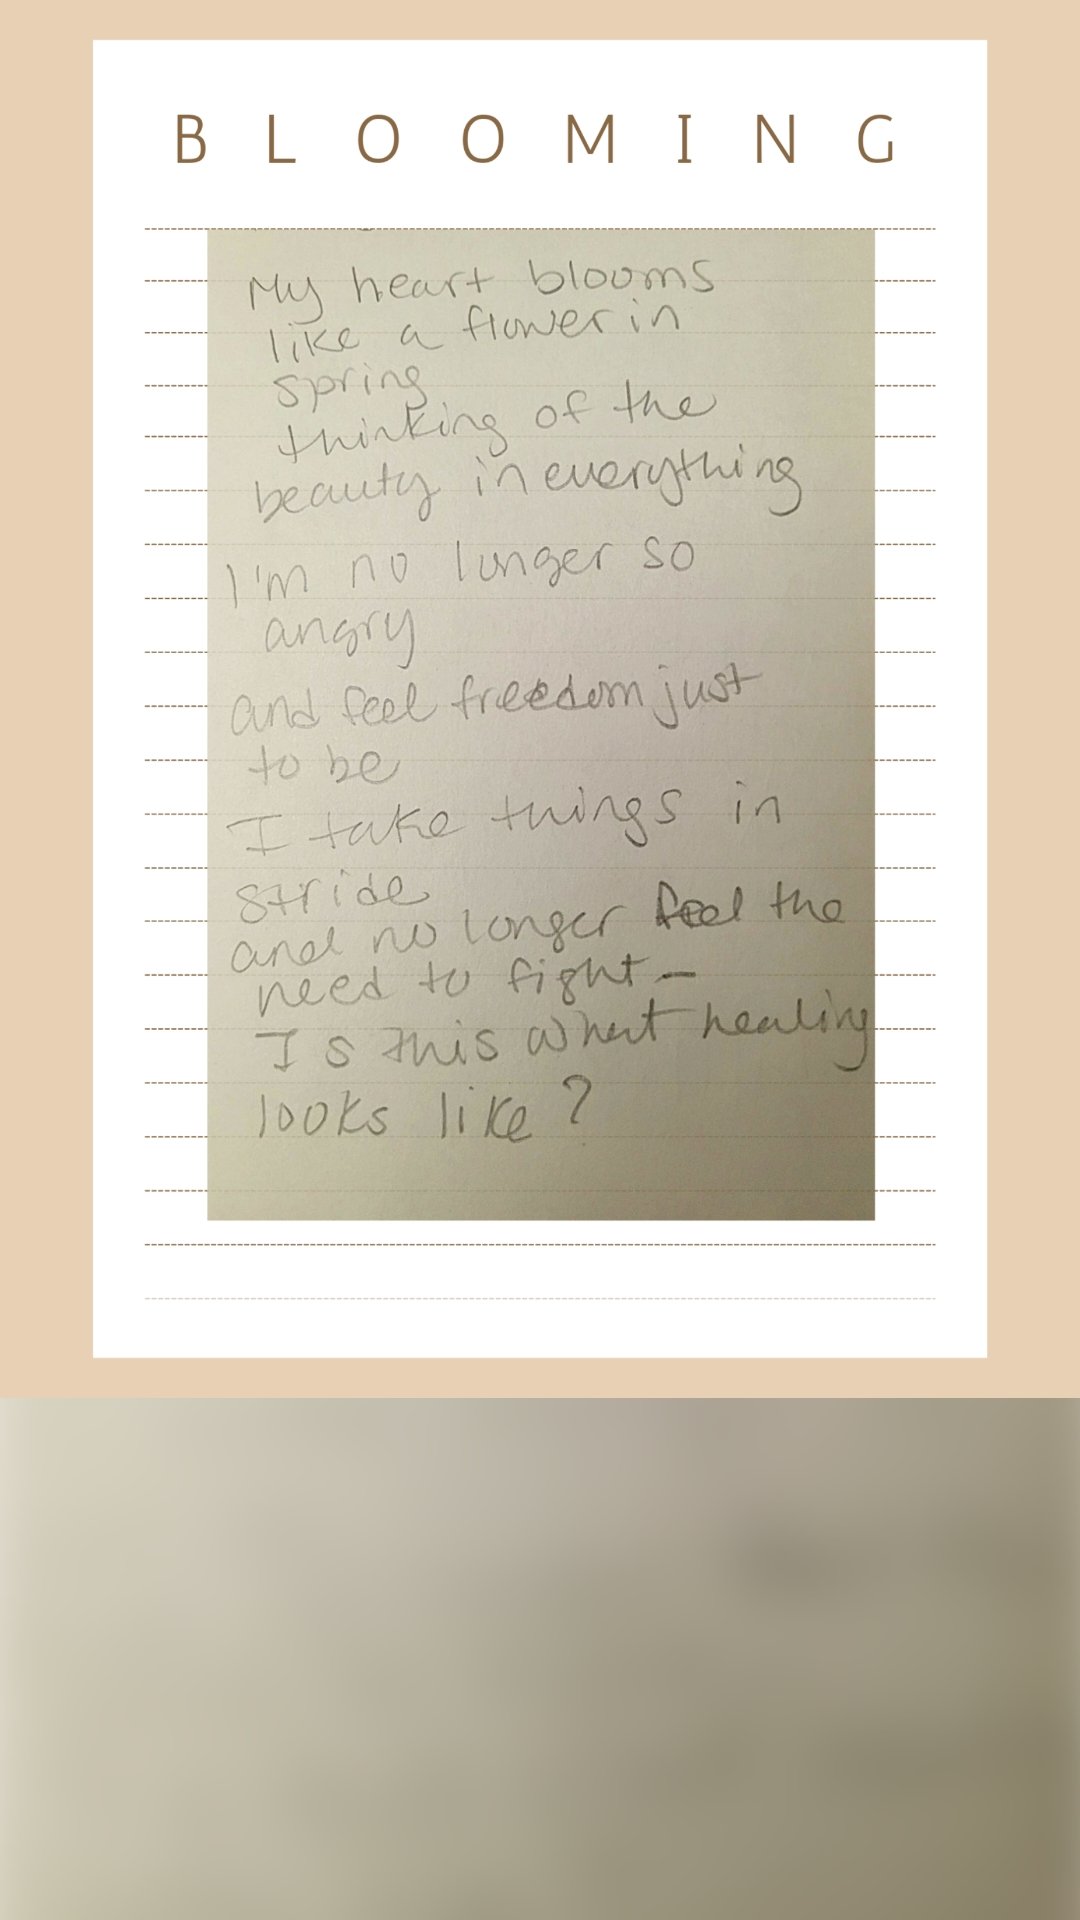 BLOOMING
My heart blooms
like a flower in
spring
thinking of the
beauty in everything
I'm no longer so
angry
and feel freedom just
to be
I take things in
stride
and no longer feel the
need to fight —
Is this what healing
looks like?